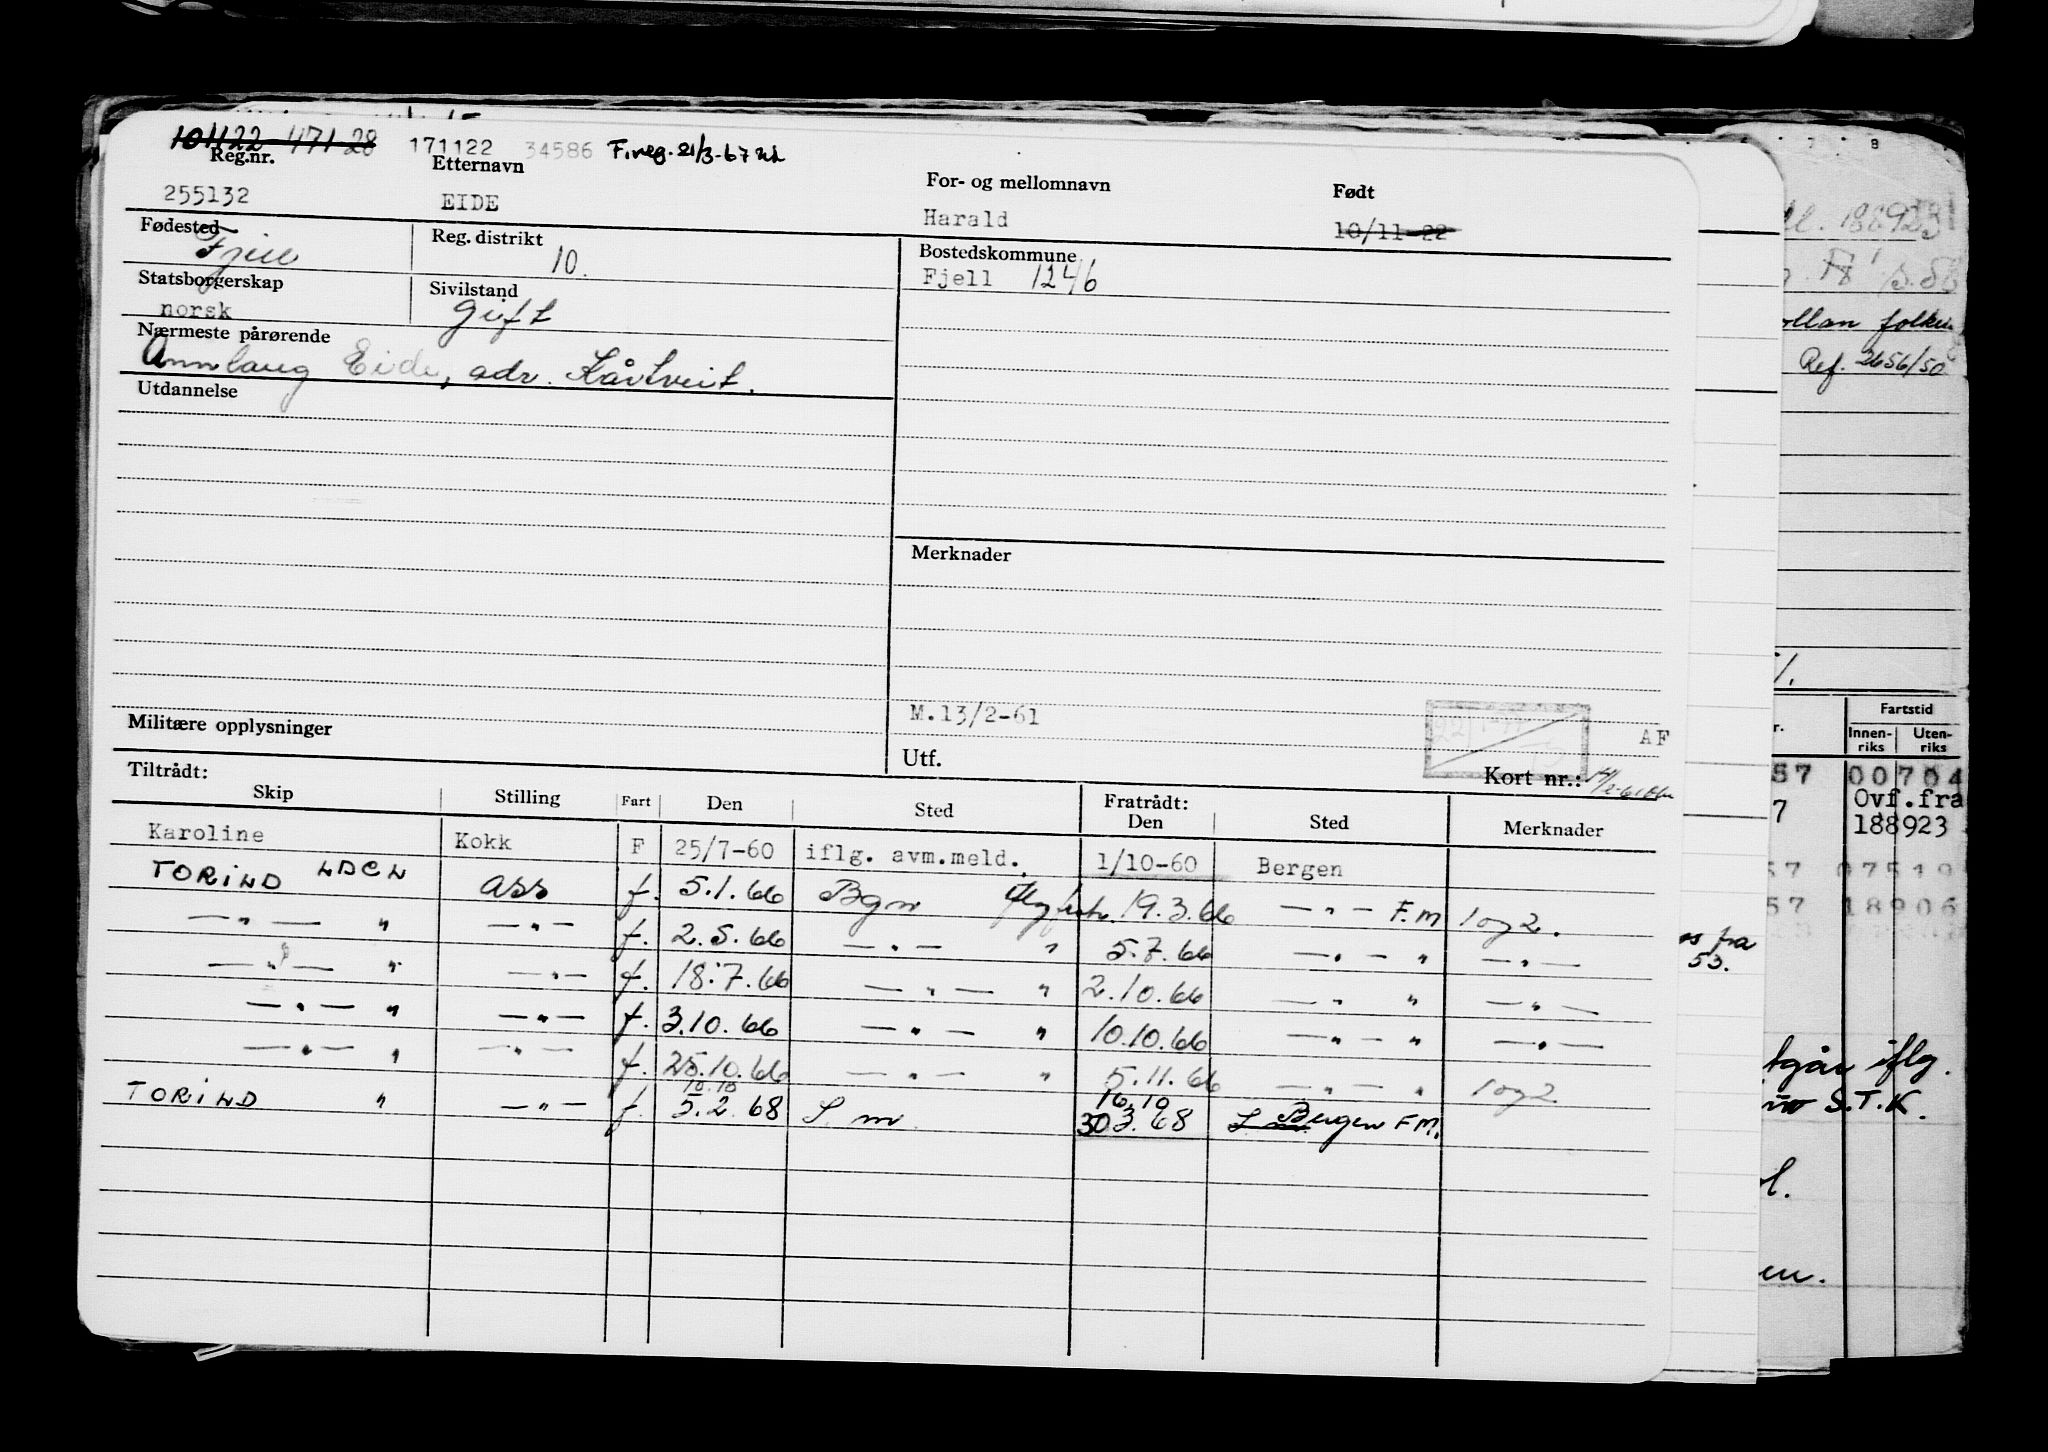 101122 47128 171122 34586 F.reg. 21/3-67
Reg.nr. Etternavn For- og mellomnavn Født
255132 EIDE Harald 10/11-22
Fødested Reg. distrikt Bostedskommune
Fjell 10. Fjell 1246
Statsborgerskap Sivilstand
norsk gift
Nærmeste pårørende
Annlaug Eide, adr. Kårtveit.
Utdannelse
Merknader
M.13/2-61
AF
Militære opplysninger Utf. Kort nr.:
Tiltrådt: Fratrådt:
Skip Stilling Fart Den Sted Den Sted Merknader
Karoline Kokk F 25/7-60 iflg. avm.meld. 1/10-60 Bergen
TORIND LDCL ass f. 5.1.66 Bgn 19.3.66 —"— F.M 1og2.
—"— " —"— f. 2.5.66 —"— " 5.7.66 —"— " —"—
—"— " —"— f. 18.7.66 —"— " 2.10.66 —"— " —"—
—"— " —"— f. 3.10.66 —"— " 10.10.66 —"— " —"—
—"— " —"— f. 25.10.66 —"— " 5.11.66 —"— " 1og2
10.10 16.10
TORIND " —"— f. 5.2.68 S.m. 30 3.68 Bergen F.M.
188923
folkere
Ref. 2656/50
Fartstid
Innen-riks Uten-riks
57 00704
Ovf.fra
7 188923
57 07519
57 18906
fra
53.
utgår iflg.
S.T.K.